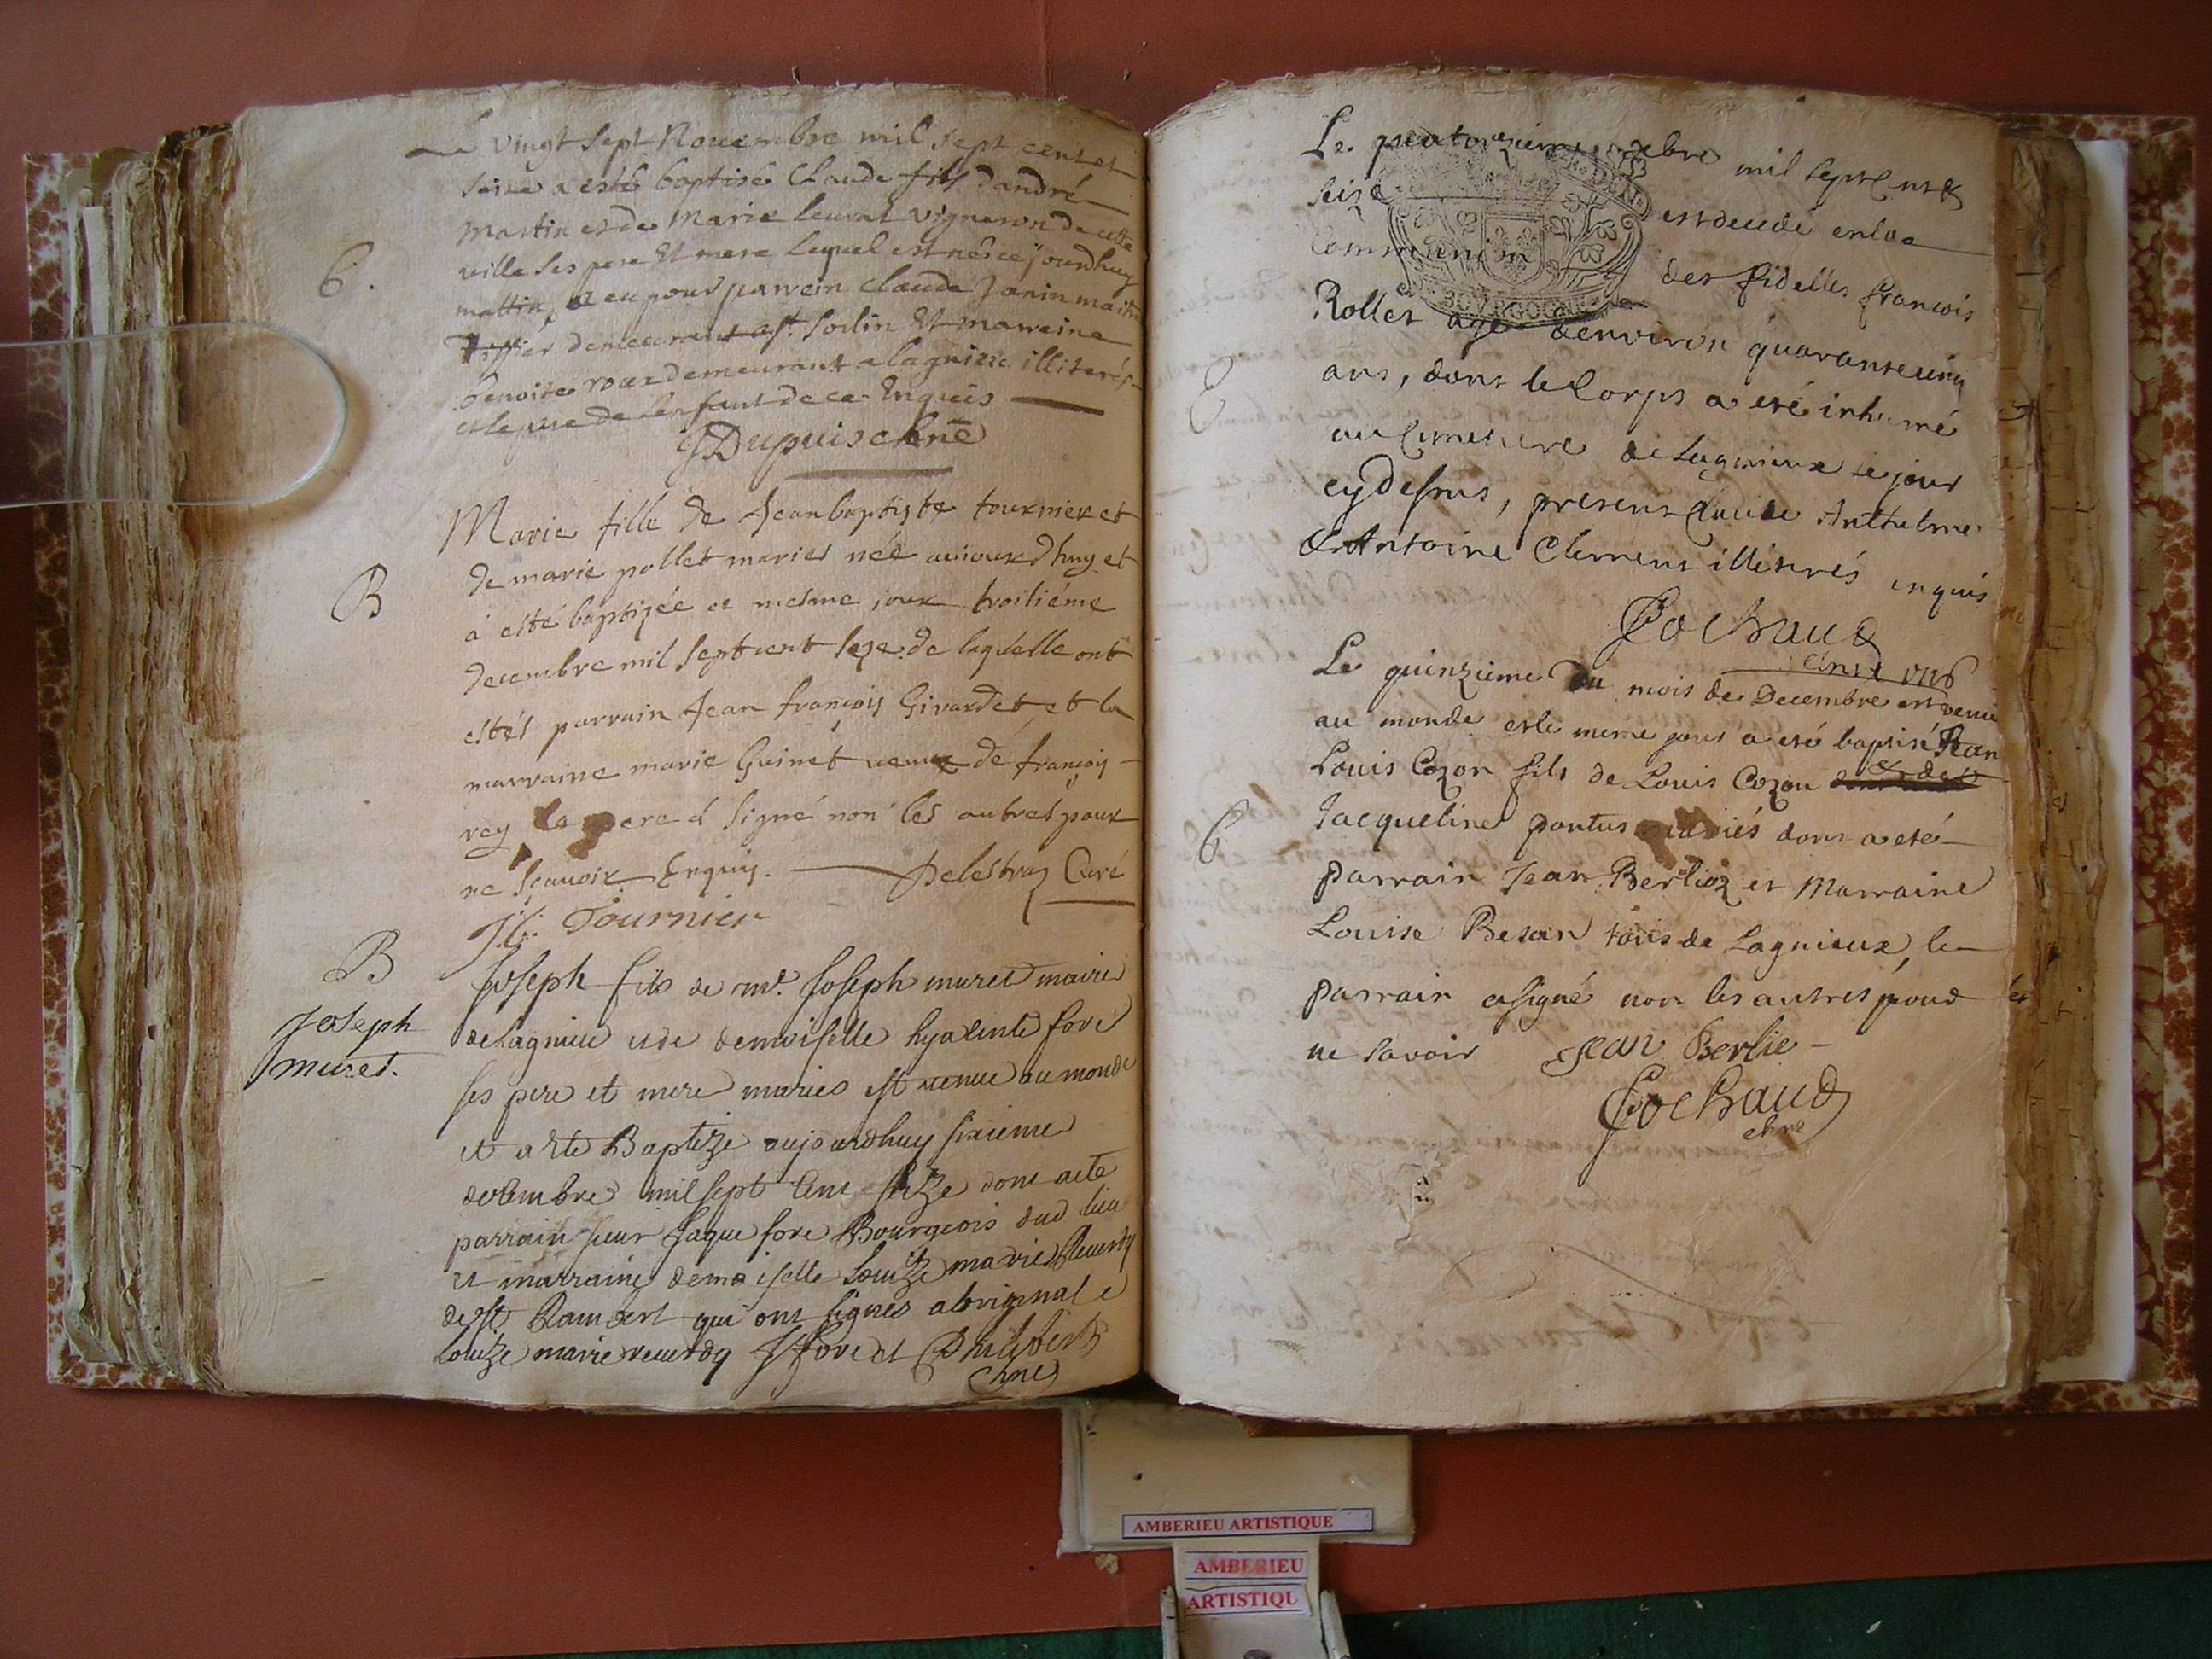 Le vingt sept Novembre mil sept cent et
seise a esté baptisé Claude fils dandré
Martin et de Marie leurat vigneron de cette
ville ses pere Et mere lequel est né ce jourdhuy
6.
mattin, a eu pour parrein claude Janin maitre
Tissier demeurant a st. sorlin Et marreine
benoite roux demeurant a lagnieu illiterés
et le pere de lenfant de ce Enquis
JDupuis chne
Marie fille de Jean baptiste tournier et
de marie pollet mariés née aujourdhuy et
B
à esté baptizée ce mesme jour troisiéme
decembre mil sept cent seze de laquelle ont
estés parrain Jean françois Girardet et la
marraine marie Guinet veuve de françois
rey le pere a signé non les autres pour
ne sçavoir Enquis. Delestraz Curé
J.b. Tournier
B
Joseph
muret.
Joseph fils de mr. Joseph muret maire
de lagnieu et de demoiselle hyacinte fore
ses pere et mere mariés est venue au monde
et a ete Baptize aujourdhuy sixieme
decembre mil sept cens seitze dont a ete
parrain sieur Jaque fore Bourgeois dud lieu
et marraine demoiselle Louize marie Reverdy
de st Rambert qui ont signés a loriginal
Louize marie reverdy J fore et Philibert
chne
Le quatorzieme xbre mil sept cent &
seise est decedé en la
Communion des fidelles francois
BOURGOGNE
Rollet agé denviron quarante cinq
ans, dont le Corps a eté inhumé
au Cimetiere de Lagnieux le jour
cy dessus, presents Claude Anthelme
& Antoine Clement illiterés enquis
Cochaud
chne 1716
Le quinzieme du mois de Decembre est venu
au monde et le meme jour a eté baptisé Jean
Louis Cozon fils de Louis Cozon & de
6
Jacqueline pontus mariés dont a eté
parrain Jean Berlioz et Marraine
Louise Besan tous de Lagnieux, le
parrain a signé non les autres pour
ne savoir Jean Berlie
Cochaud
chne
AMBERIEU ARTISTIQUE
AMBERIEU
ARTISTIQU